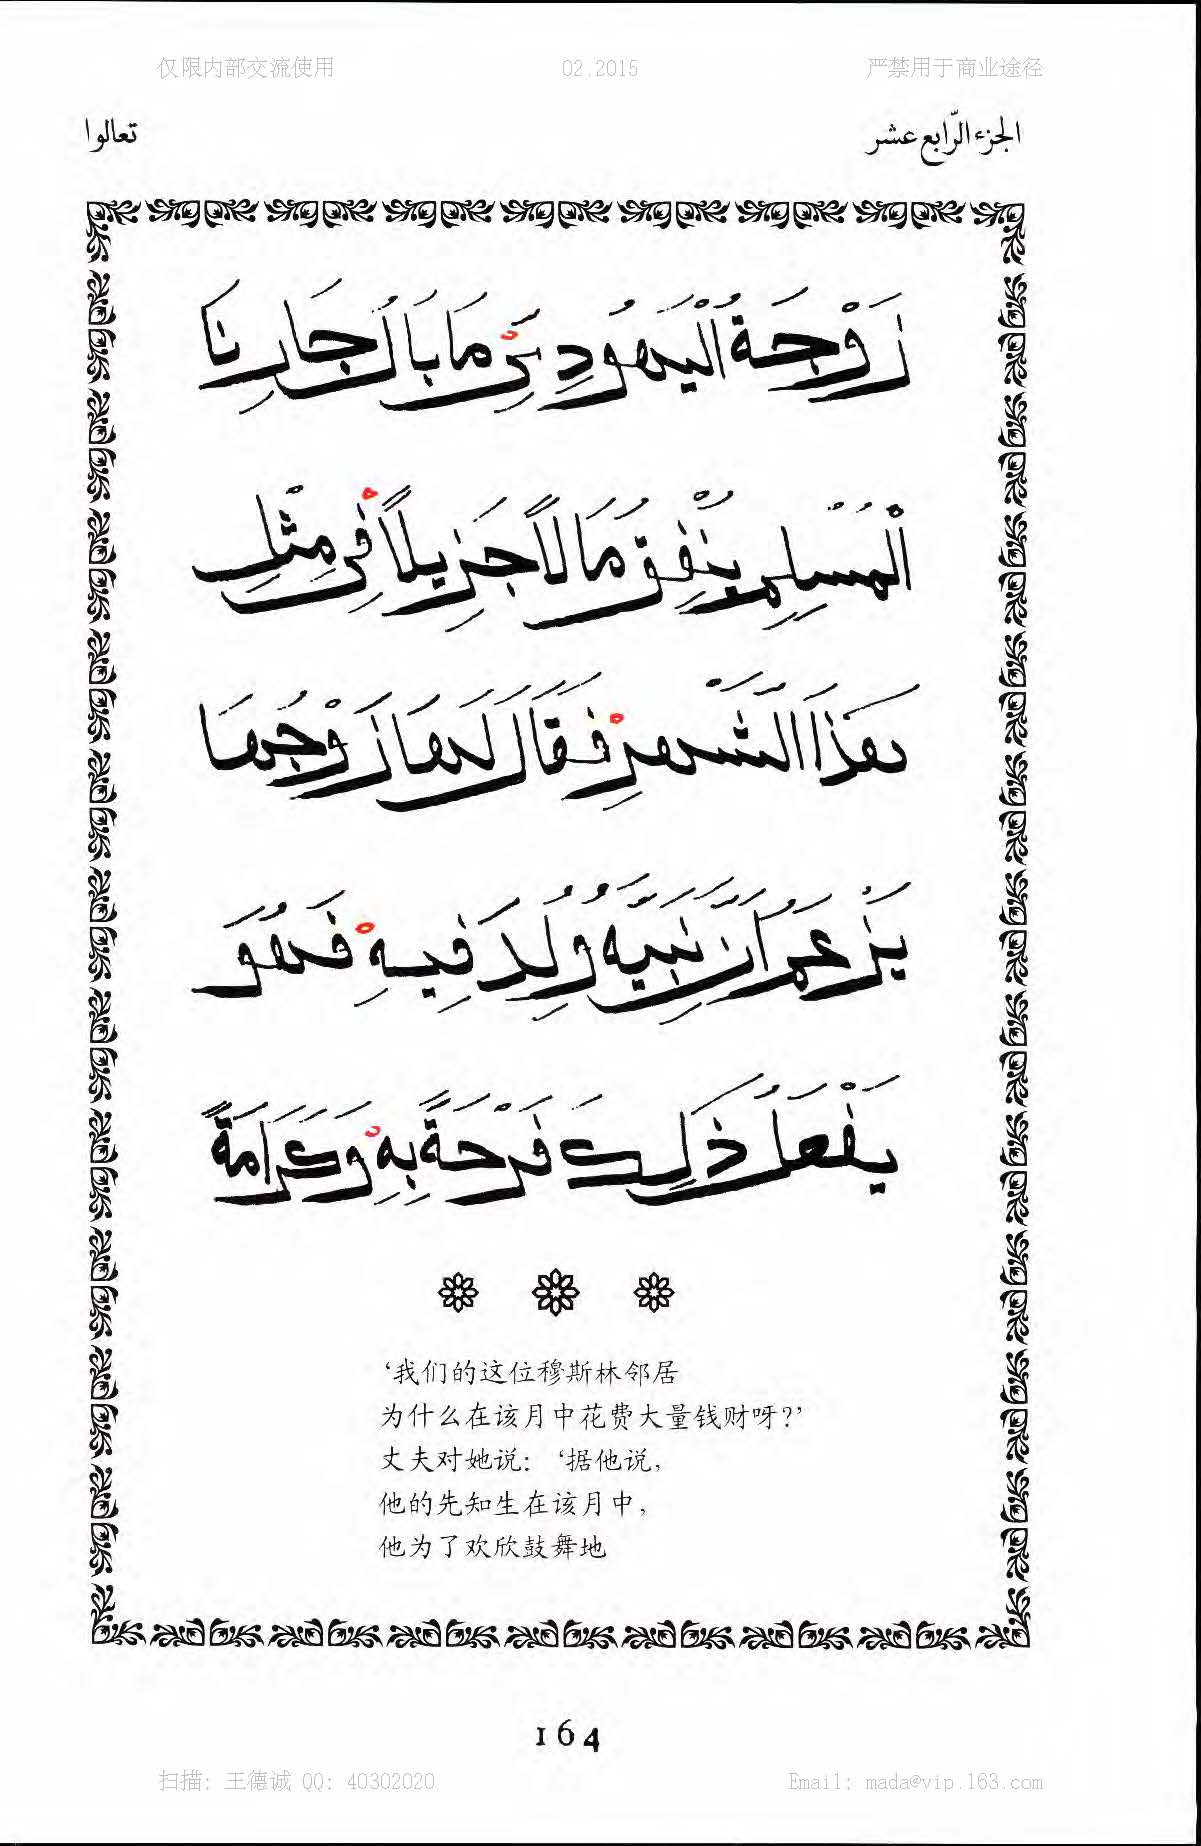 仅限内部交流使用 02.2015 严禁用于商业途径
الجزء الرّابع عشر
تعالوا
زَوْجَةُ الْيَهُودِيِّ مَا بَالُ جَارِنَا
الْمُسْلِمِ يُنْفِقُ مَالًا جَزِيلًا فِي مِثْلِ
هَذَا الشَّهْرِ فَقَالَ لَهَا زَوْجُهَا
يَزْعُمُ أَنَّ نَبِيَّهُ وُلِدَ فِيهِ فَهُوَ
يَفْعَلُ ذَلِكَ فَرْحَةً بِهِ وَكَرَامَةً
‘我们的这位穆斯林邻居
为什么在该月中花费大量钱财呀？’
丈夫对她说：‘据他说，
他的先知生在该月中，
他为了欢欣鼓舞地
164
扫描：王德诚 QQ: 40302020 Email: mada@vip.163.com